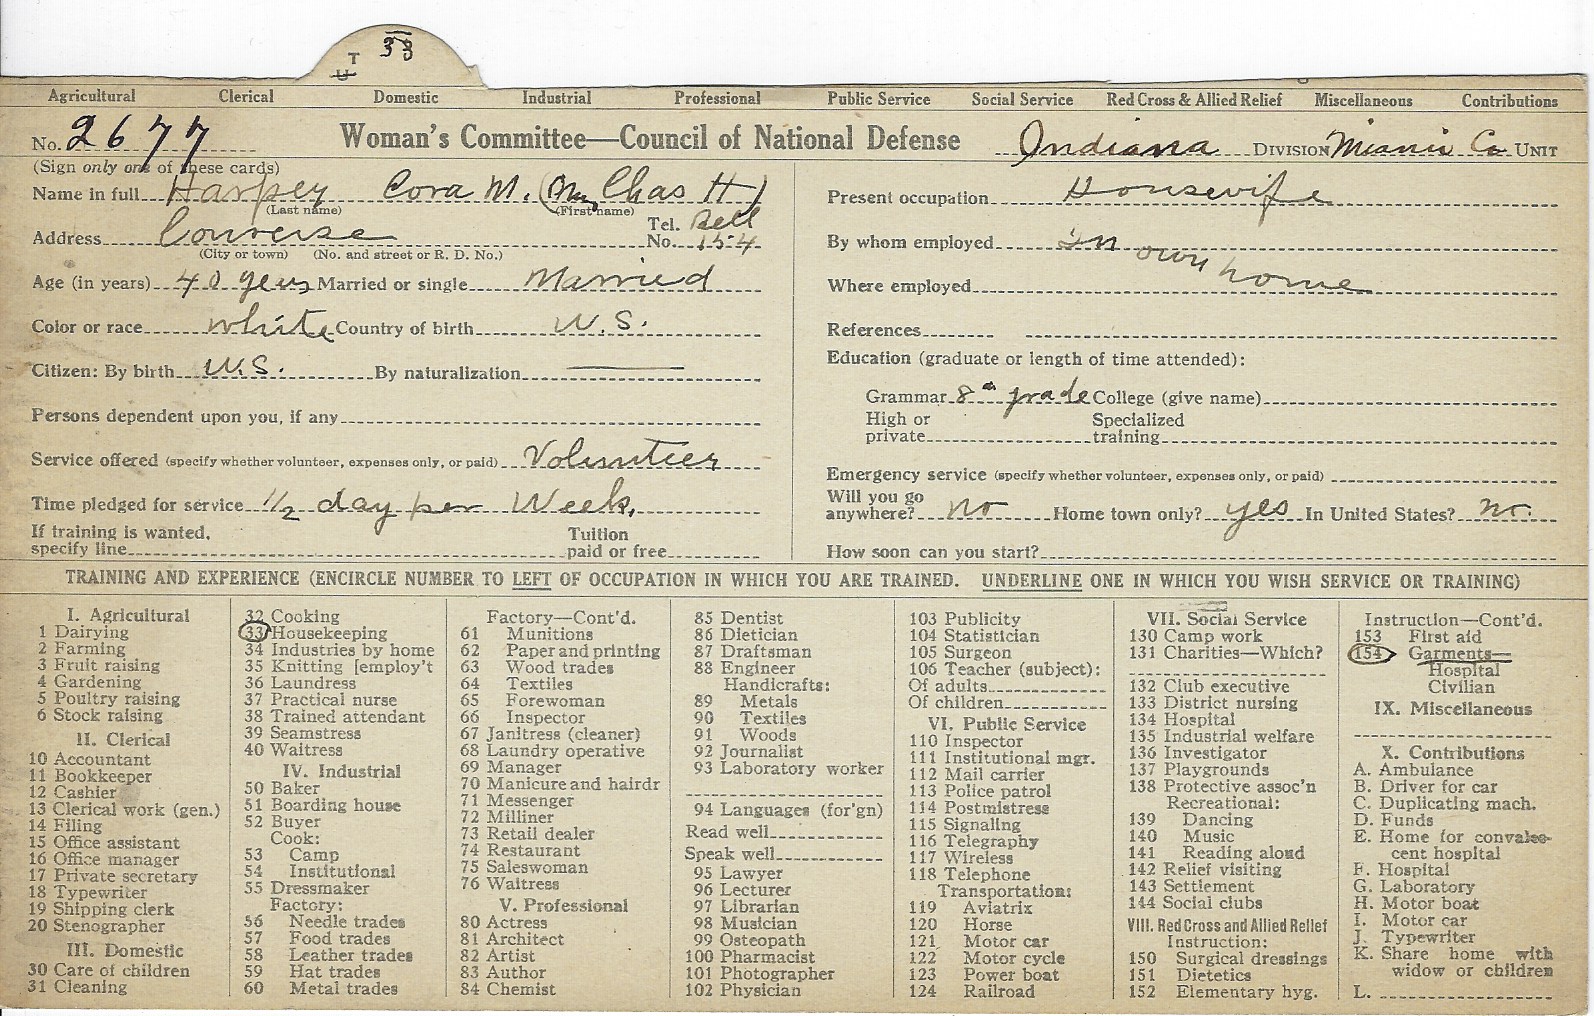 T 33
U
Agricultural Clerical Domestic Industrial Professional Public Service Social Service Red Cross & Allied Relief Miscellaneous Contributions
No. 2677 Woman's Committee—Council of National Defense Indiana DIVISION Miami Co UNIT
(Sign only one of these cards)
Name in full Harpey Cora M. (Mrs Chas H)
(Last name) (First name)
Address Converse Tel. No. Bell 154
(City or town) (No. and street or R. D. No.)
Age (in years) 40 years Married or single Married
Color or race white Country of birth U.S.
Citizen: By birth U.S. By naturalization —
Persons dependent upon you, if any
Service offered (specify whether volunteer, expenses only, or paid) Volunteer
Time pledged for service 1/2 day per Week.
If training is wanted, specify line Tuition paid or free
Present occupation Housewife
By whom employed In own home
Where employed
References
Education (graduate or length of time attended):
Grammar 8th grade College (give name)
High or private Specialized training
Emergency service (specify whether volunteer, expenses only, or paid)
Will you go anywhere? no Home town only? yes In United States? no.
How soon can you start?
TRAINING AND EXPERIENCE (ENCIRCLE NUMBER TO LEFT OF OCCUPATION IN WHICH YOU ARE TRAINED. UNDERLINE ONE IN WHICH YOU WISH SERVICE OR TRAINING)
I. Agricultural
1 Dairying
2 Farming
3 Fruit raising
4 Gardening
5 Poultry raising
6 Stock raising
II. Clerical
10 Accountant
11 Bookkeeper
12 Cashier
13 Clerical work (gen.)
14 Filing
15 Office assistant
16 Office manager
17 Private secretary
18 Typewriter
19 Shipping clerk
20 Stenographer
III. Domestic
30 Care of children
31 Cleaning
32 Cooking
33 Housekeeping
34 Industries by home
35 Knitting [employ't
36 Laundress
37 Practical nurse
38 Trained attendant
39 Seamstress
40 Waitress
IV. Industrial
50 Baker
51 Boarding house
52 Buyer
Cook:
53 Camp
54 Institutional
55 Dressmaker
Factory:
56 Needle trades
57 Food trades
58 Leather trades
59 Hat trades
60 Metal trades
Factory—Cont'd.
61 Munitions
62 Paper and printing
63 Wood trades
64 Textiles
65 Forewoman
66 Inspector
67 Janitress (cleaner)
68 Laundry operative
69 Manager
70 Manicure and hairdr
71 Messenger
72 Milliner
73 Retail dealer
74 Restaurant
75 Saleswoman
76 Waitress
V. Professional
80 Actress
81 Architect
82 Artist
83 Author
84 Chemist
85 Dentist
86 Dietician
87 Draftsman
88 Engineer
Handicrafts:
89 Metals
90 Textiles
91 Woods
92 Journalist
93 Laboratory worker
94 Languages (for'gn)
Read well
Speak well
95 Lawyer
96 Lecturer
97 Librarian
98 Musician
99 Osteopath
100 Pharmacist
101 Photographer
102 Physician
103 Publicity
104 Statistician
105 Surgeon
106 Teacher (subject):
Of adults
Of children
VI. Public Service
110 Inspector
111 Institutional mgr.
112 Mail carrier
113 Police patrol
114 Postmistress
115 Signaling
116 Telegraphy
117 Wireless
118 Telephone
Transportation:
119 Aviatrix
120 Horse
121 Motor car
122 Motor cycle
123 Power boat
124 Railroad
VII. Social Service
130 Camp work
131 Charities—Which?
132 Club executive
133 District nursing
134 Hospital
135 Industrial welfare
136 Investigator
137 Playgrounds
138 Protective assoc'n
Recreational:
139 Dancing
140 Music
141 Reading aloud
142 Relief visiting
143 Settlement
144 Social clubs
VIII. Red Cross and Allied Relief
Instruction:
150 Surgical dressings
151 Dietetics
152 Elementary hyg.
Instruction—Cont'd.
153 First aid
154 Garments—
Hospital
Civilian
IX. Miscellaneous
X. Contributions
A. Ambulance
B. Driver for car
C. Duplicating mach.
D. Funds
E. Home for convales-
cent hospital
F. Hospital
G. Laboratory
H. Motor boat
I. Motor car
J. Typewriter
K. Share home with
widow or children
L.